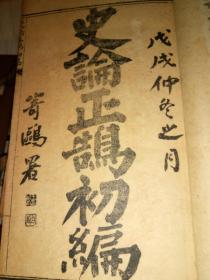 戊戌仲冬之月
史論正鵠初編
寄鷗署